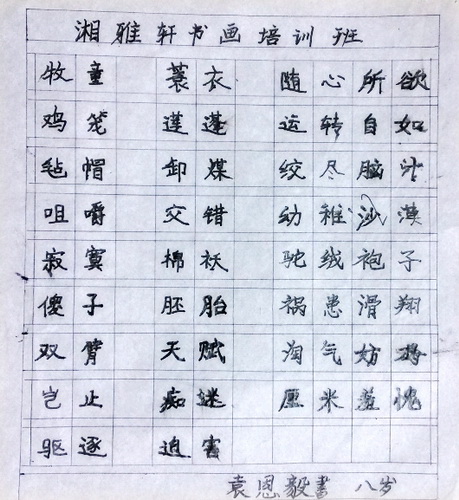 湘雅轩书画培训班
牧童 蓑衣 随心所欲
鸡笼 莲蓬 运转自如
毡帽 卸煤 绞尽脑汁
咀嚼 交错 幼稚沙漠
寂寞 棉袄 驼绒袍子
傻子 胚胎 祸患滑翔
双臂 天赋 淘气妨
岂止 痴迷 厘米羞愧
驱逐 迫害
袁恩毅书 八岁